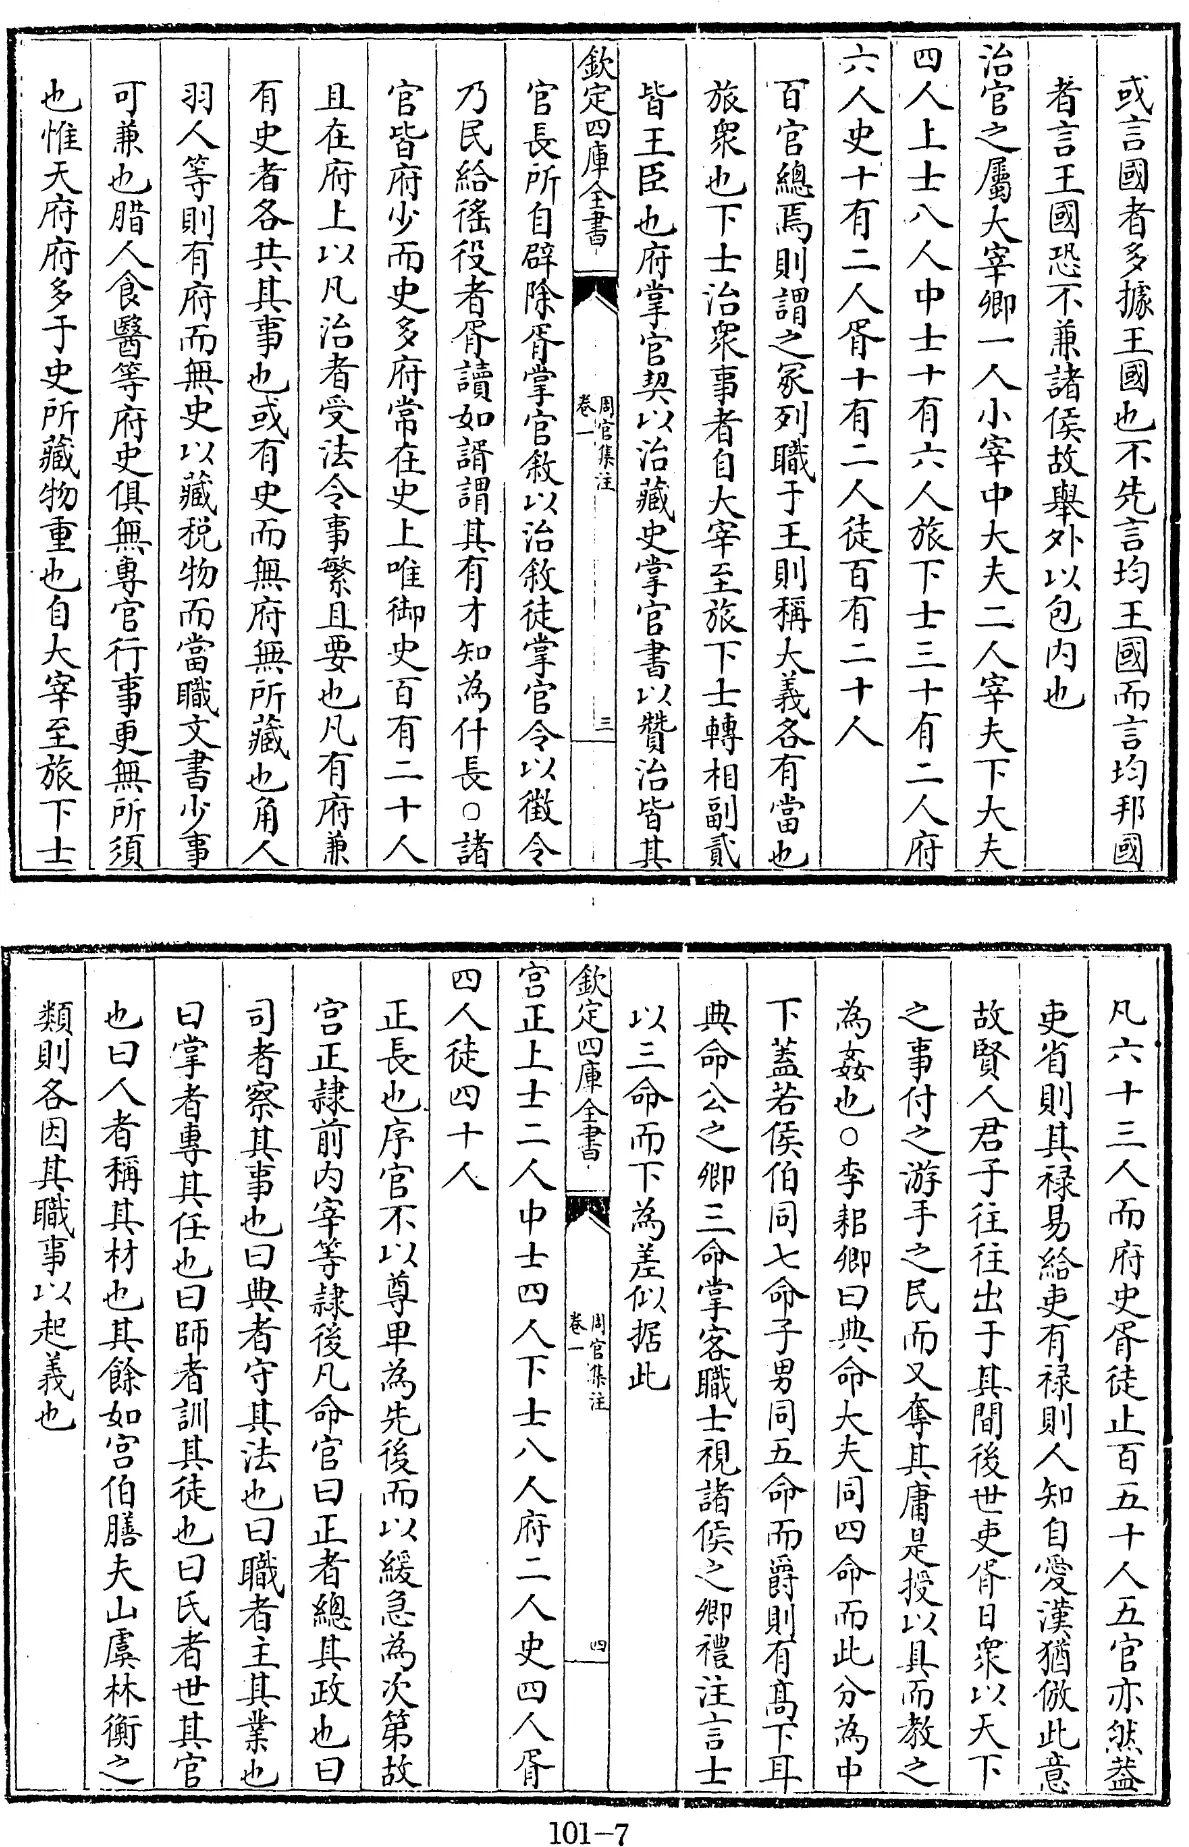 或言國者多據王國也不先言均王國而言均邦國
者言王國恐不兼諸侯故舉外以包内也
治官之屬大宰卿一人小宰中大夫二人宰夫下大夫
四人上士八人中士十有六人旅下士三十有二人府
六人史十有二人胥十有二人徒百有二十人
百官總焉則謂之冢列職于王則稱大義各有當也
旅衆也下士治衆事者自大宰至旅下士轉相副貳
皆王臣也府掌官契以治藏史掌官書以贊治皆其
欽定四庫全書
周官集注
卷一
三
官長所自辟除胥掌官敘以治敘徒掌官令以徵令
乃民給徭役者胥讀如諝謂其有才知為什長○諸
官皆府少而史多府常在史上唯御史百有二十人
且在府上以凡治者受法令事繁且要也凡有府兼
有史者各共其事也或有史而無府無所藏也角人
羽人等則有府而無史以藏税物而當職文書少事
可兼也腊人食醫等府史俱無專官行事更無所須
也惟天府府多于史所藏物重也自大宰至旅下士
凡六十三人而府史胥徒止百五十人五官亦然蓋
吏省則其禄易給吏有禄則人知自愛漢猶倣此意
故賢人君子往往出于其間後世吏胥日衆以天下
之事付之游手之民而又奪其庸是授以具而教之
為姦也○李耜卿曰典命大夫同四命而此分為中
下蓋若侯伯同七命子男同五命而爵則有髙下耳
典命公之卿三命掌客職士視諸侯之卿禮注言士
以三命而下為差似据此
欽定四庫全書
周官集注
卷一
四
宫正上士二人中士四人下士八人府二人史四人胥
四人徒四十人
正長也序官不以尊卑為先後而以緩急為次第故
宫正隷前内宰等隷後凡命官曰正者總其政也曰
司者察其事也曰典者守其法也曰職者主其業也
曰掌者專其任也曰師者訓其徒也曰氏者世其官
也曰人者稱其材也其餘如宫伯膳夫山虞林衡之
類則各因其職事以起義也
101-7